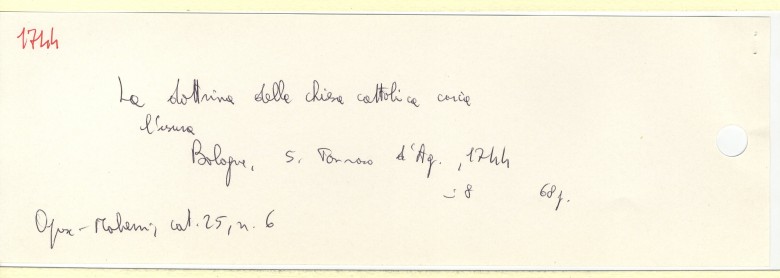 1744
La dottrina della chiesa cattolica circa
l'usura
Bologna, S. Tommaso d'Aq., 1744
in-8 68 p.
cat. 25, n. 6